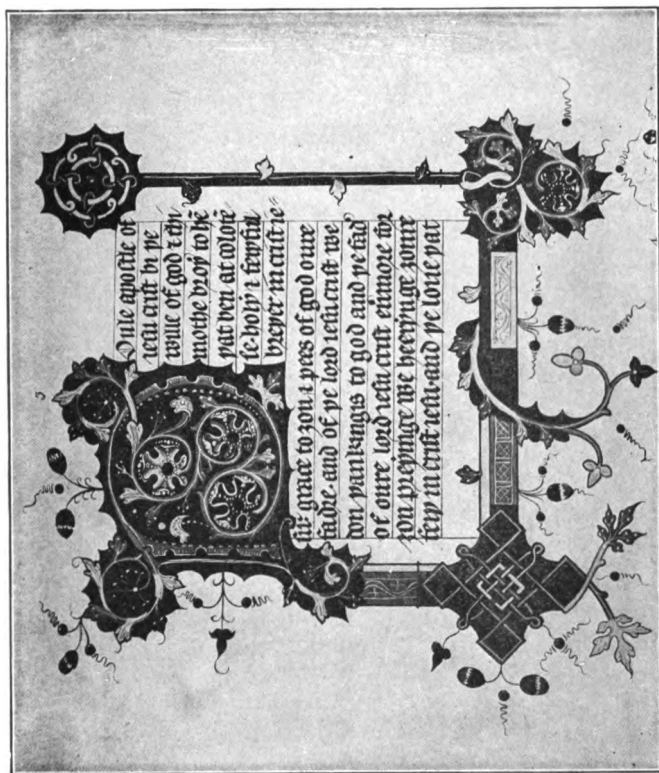 Poule apostle of
iesu crist bi þe
wille of god ⁊ thi
mothe broþ to hē
þat ben at colosē
se hooli ⁊ feiþful
breþer in crist ie=
su: grace to ȝou ⁊ pees of god oure
fadre. and of þe lord iesu crist we
don þankingis to god and þe fad'
of oure lord iesu crist euermore for
ȝou preiynge we heerynge ȝoure
feiþ in crist iesu. and þe loue þat